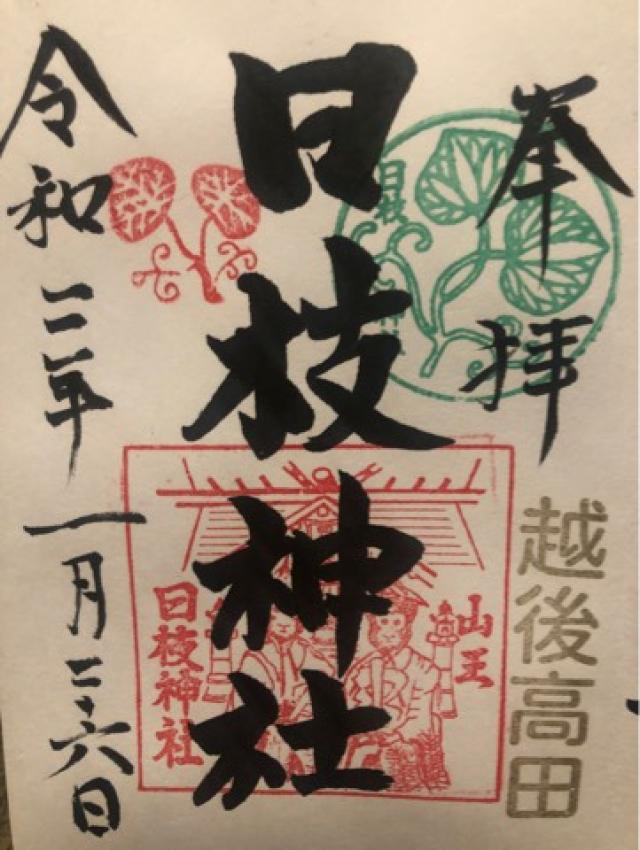 奉拝
越後高田
日枝神社
山王
日枝神社
日枝
令和二年一月二十六日